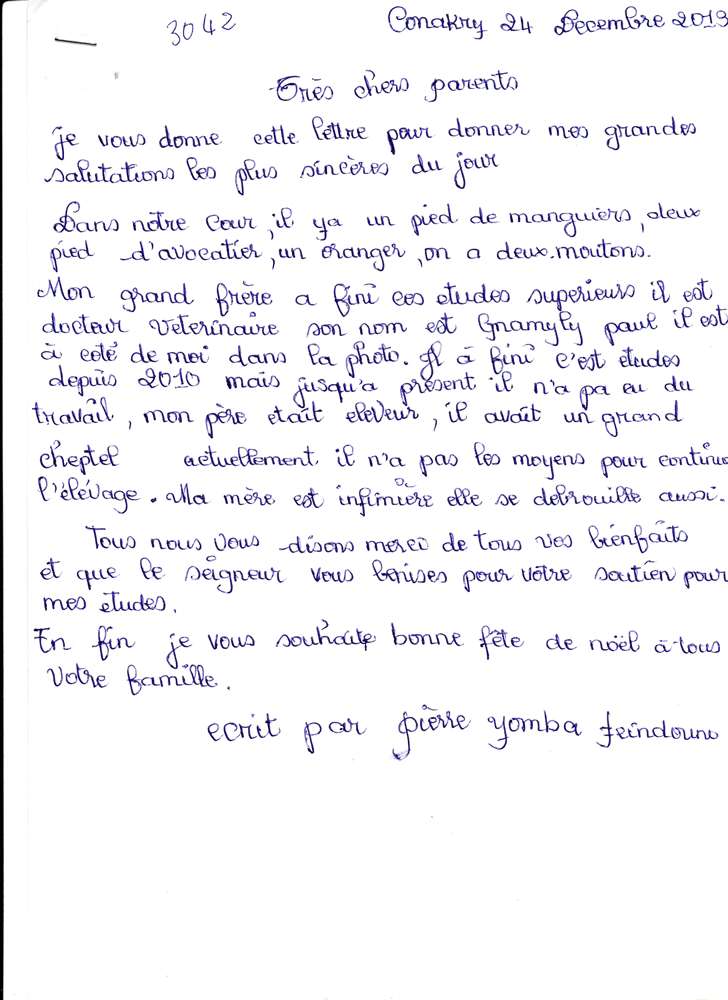 3042
Conakry 24 Decembre 2019
Très chers parents
je vous donne cette lettre pour donner mes grandes
salutations les plus sincères du jour
Dans nôtre cour, il ya un pied de manguiers, deux
pied d'avocatier, un oranger, on a deux moutons.
Mon grand frère a fini ces etudes superieurs il est
docteur veterinaire son nom est Gnamyly paul il est
à coté de moi dans la photo. Il à fini c'est etudes
depuis 2010 mais jusqu'a présent il n'a pa eu du
travail, mon père etait eleveur, il avait un grand
cheptel actuellement il n'a pas les moyens pour continue
l'élévage. Ma mère est infirmière elle se debrouille aussi.
Tous nous vous disons merci de tous vos bienfaits
et que le seigneur vous benises pour vôtre soutien pour
mes études.
En fin je vous souhaite bonne fête de noël à tous
votre famille.
ecrit par pièrre yomba feindouno